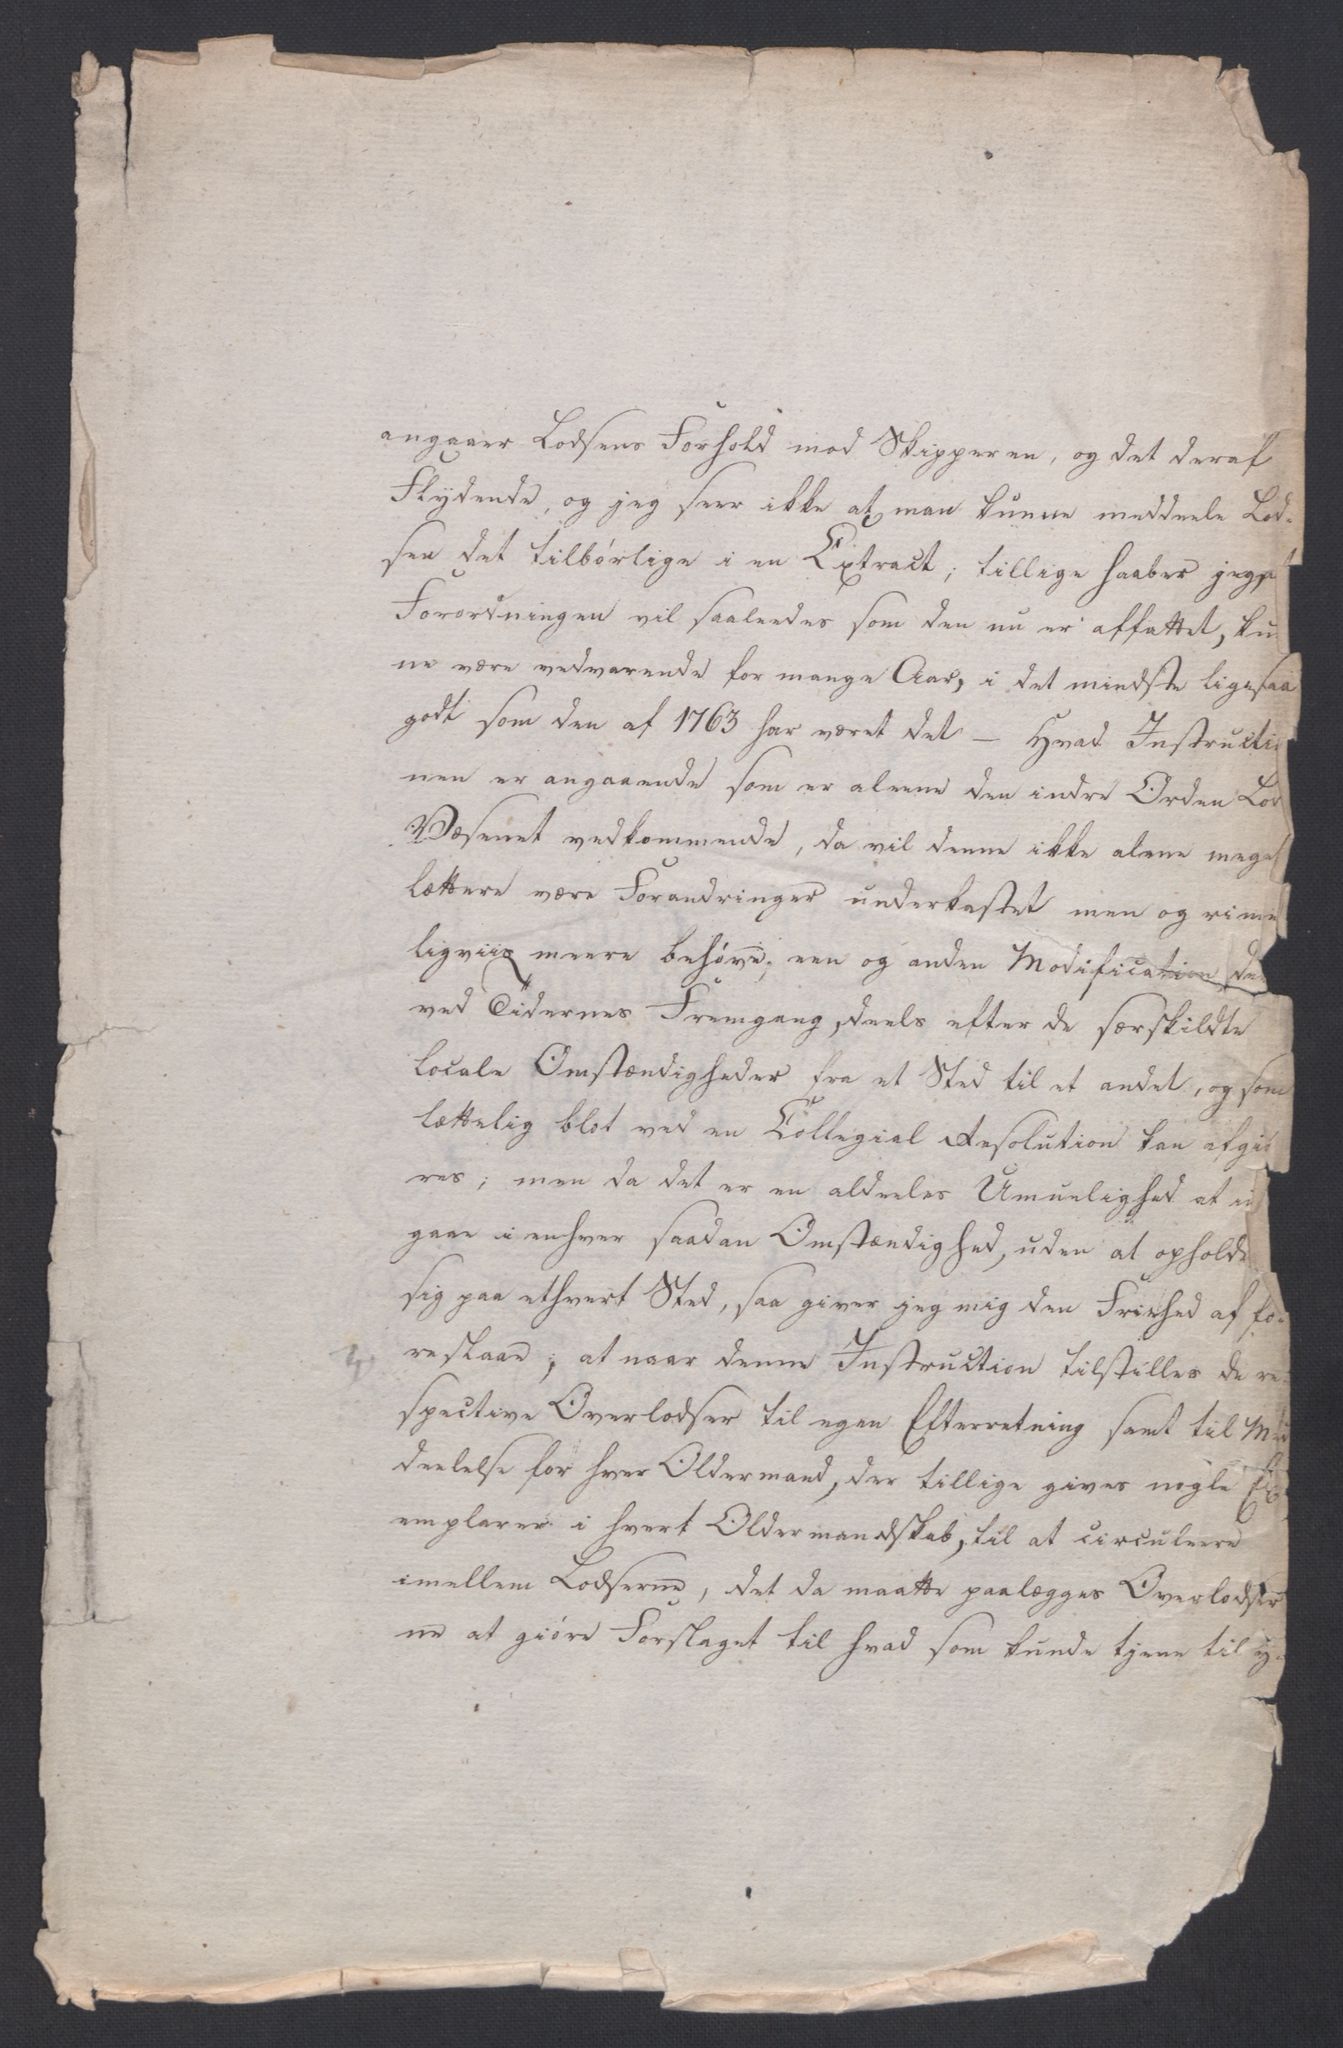 angaaer Lodsens Forhold mod Skipperen, og det deraf
Flydende, og jeg seer ikke at man kunne meddeele Lod-
sen det tilbórlige i en Extract; tillige haaber jeg at
Forordningen vil saaleedes som den nu er affattet, kun
ne være vedvarende for mange Aar, i det mindste ligesaa
godt som den af 1763 har været det — Hvad Instructi
nen er angaaende som er aleene den indre Orden Lod
Væsenet vedkommende, da vil denne ikke alene meget
lættere være Forandringer underkastet men og rime
ligviis meere behøve, een og anden Modification de
ved Tidernes Fremgang, deels efter de særskildte
locale Omstændigheder fra et Sted til et andet, og som
lættelig blot ved en Collegial Resolution kan afgiø
res; men da det er en aldeeles Umuelighed at in
gaae i enhver saadan Omstændighed, uden at opholde
sig paa ethvert Sted, saa giver jeg mig den Friehed af fo-
reslaae, at naar denne Instruction tilstilles de re-
spective Overlodser til egen Efterretning samt til Med
deelelse for hver Oldermand, der tillige gives nogle Ex
emplarer i hvert Oldermandskab, til at circuleere
imellem Lodserne, det da maatte paalægges Overlodser
ne at giøre Forslaget til hvad som kunde tjene til y-